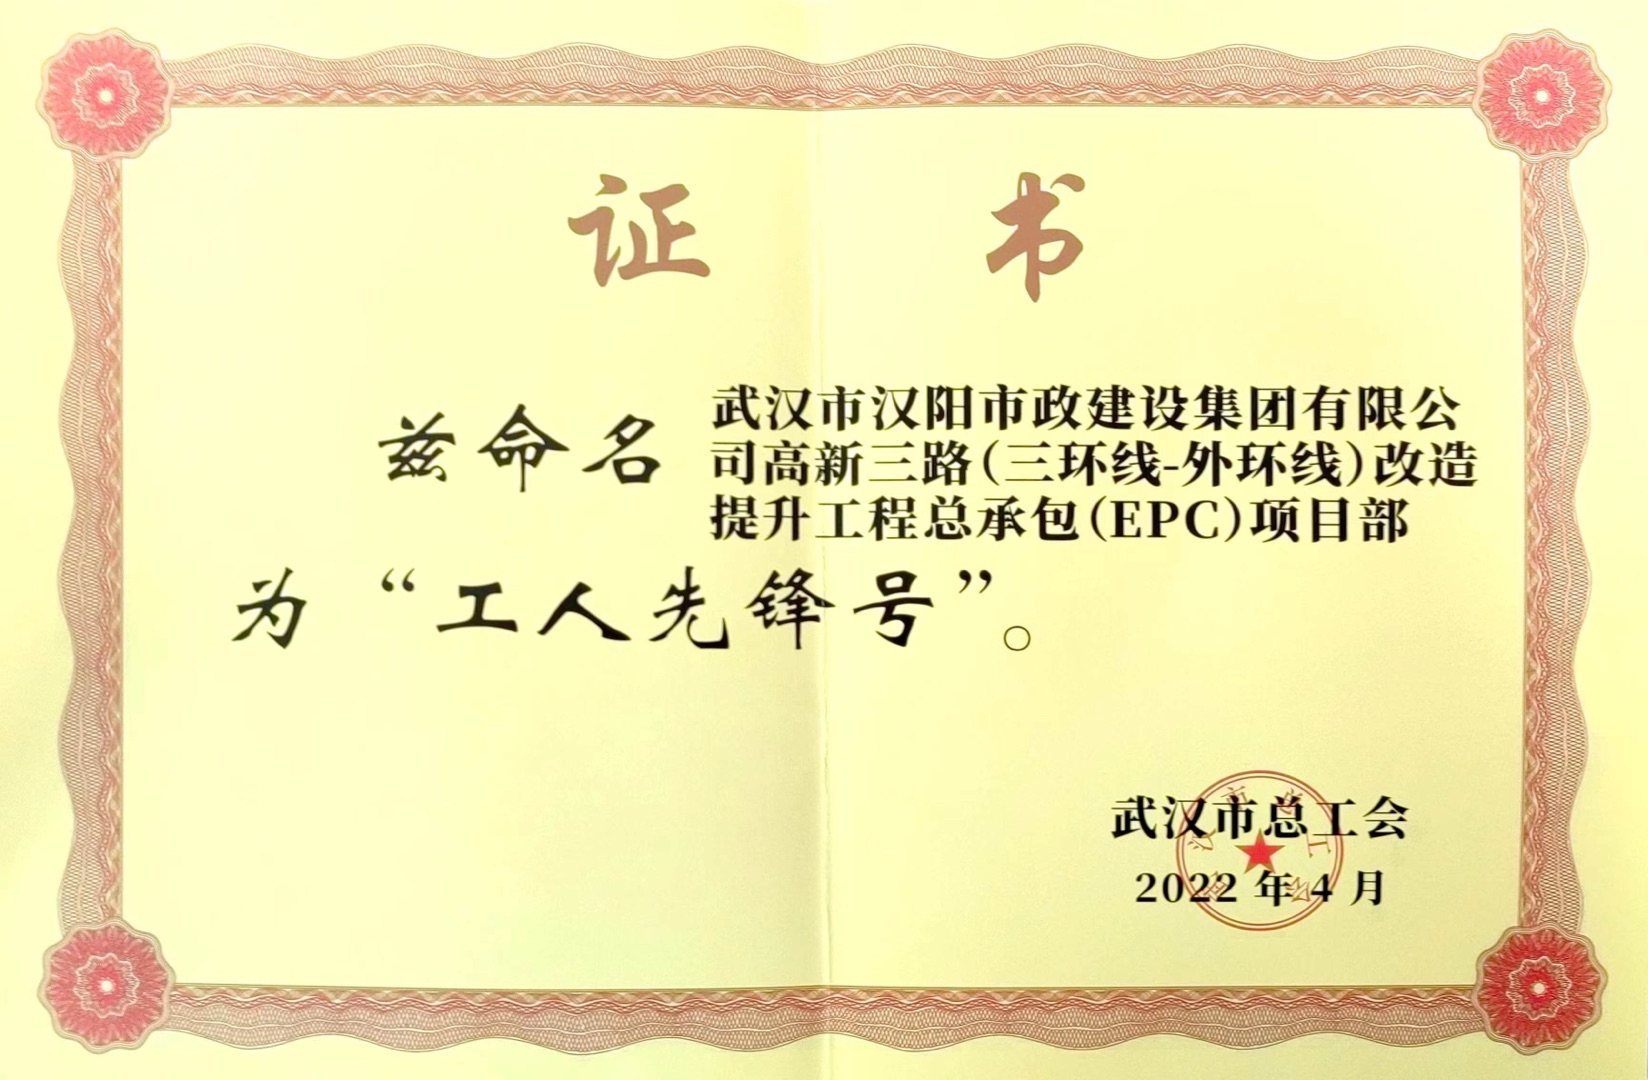 证 书
兹命名
武汉市汉阳市政建设集团有限公
司高新三路(三环线-外环线)改造
提升工程总承包(EPC)项目部
为“工人先锋号”。
武汉市总工会
2022 年 4 月
武汉市总工会